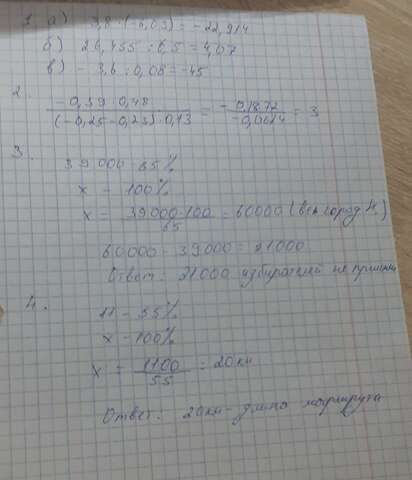 1. а) 3,8 · (-6,03) = -22,914
б) 26,455 : 6,5 = 4,07
в) - 3,6 : 0,08 = -45
2.
-0,39 · 0,48 / (-0,25-0,23) · 0,13 = -0.1872 / -0,0624 = 3
3.
39 000 - 65%
x - 100%
x = 39000·100 / 65 = 60000 (весь город N.)
60000 - 39000 = 21000
Ответ: 21000 избирателей не пришли
4.
11 - 55%
x - 100%
x = 1100 / 55 = 20км
Ответ: 20км - длина маршрута